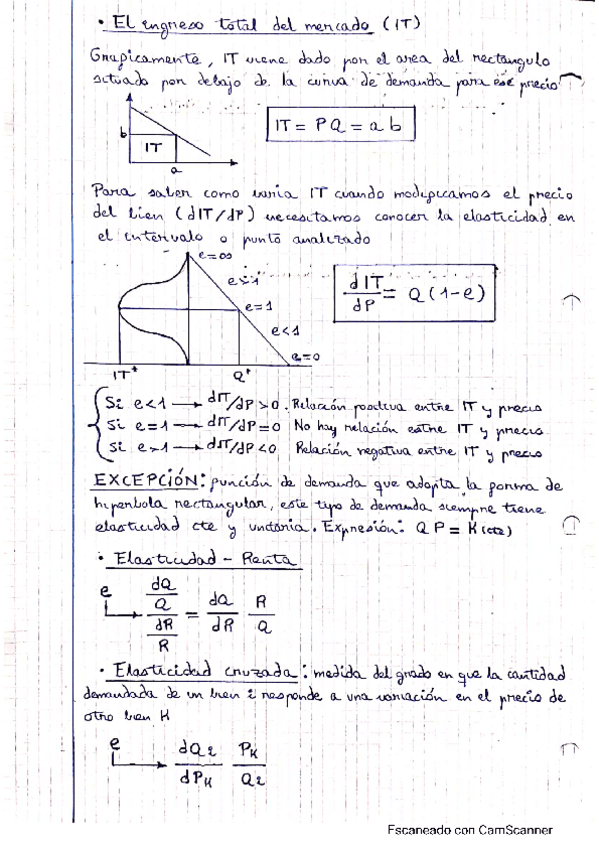 • El ingreso total del mercado (IT)
Graficamente, IT viene dado por el area del rectangulo
situado por debajo de la curva de demanda para ese precio
b
IT
a
IT = PQ = a b
Para saber como varia IT cuando modificamos el precio
del bien (dIT/dP) necesitamos conocer la elasticidad en
el intervalo o punto analizado
e=∞
e>1
e=1
e<1
e=0
IT*
Q*
dIT/dP = Q (1-e)
Si e<1 → dIT/dP>0. Relación positiva entre IT y precio
Si e=1 → dIT/dP=0 No hay relación entre IT y precio
Si e>1 → dIT/dP<0 Relación negativa entre IT y precio
EXCEPCIÓN: función de demanda que adopta la forma de
hiperbola rectangular, este tipo de demanda siempre tiene
elasticidad cte y unitaria. Expresión: Q P = K (cte)
• Elasticidad - Renta
e → dQ/Q / dR/R = dQ/dR R/Q
• Elasticidad cruzada: medida del grado en que la cantidad
demandada de un bien i responde a una variación en el precio de
otro bien K
e → dQi/dPK PK/Qi
Escaneado con CamScanner